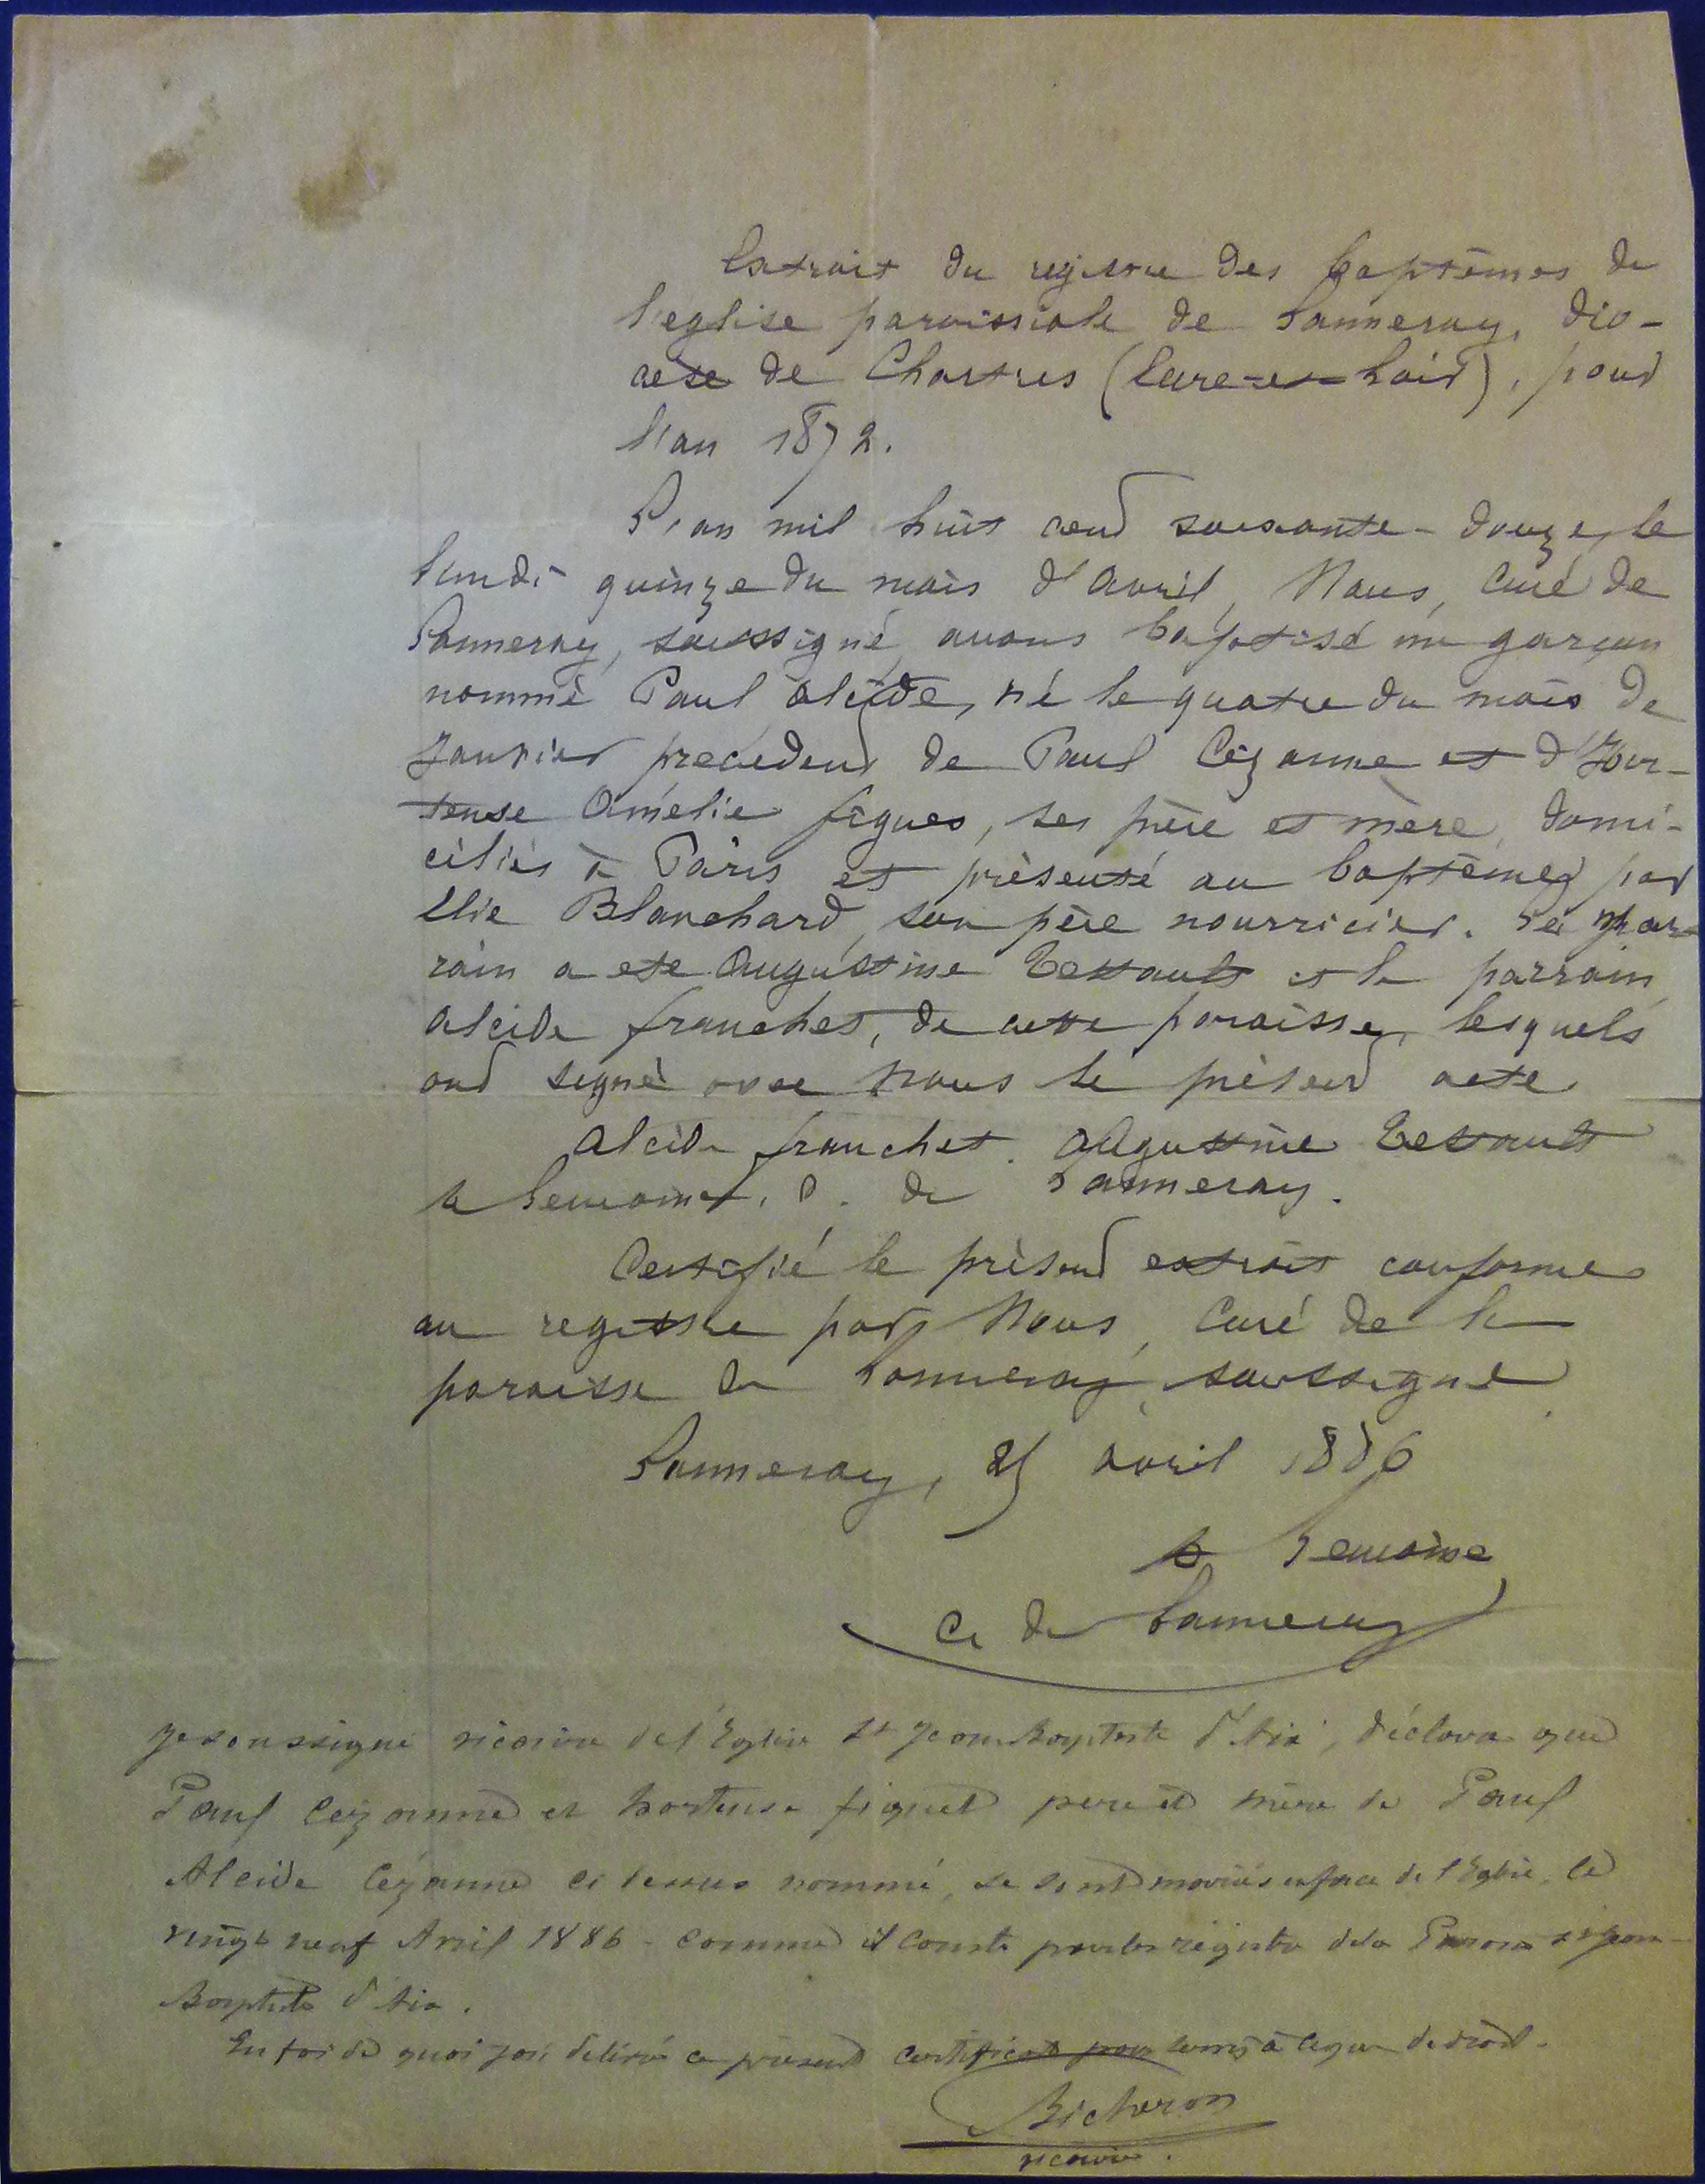 Extrait du registre des baptêmes de
l'eglise paroissiale de Sanneray, dio-
cèse de Chartres (Eure-et-Loir), pour
l'an 1872.
L'an mil huit cent soixante-douze, le
lundi quinze du mois d'avril, Nous, Curé de
Sanneray, soussigné, avons baptisé un garçon
nommé Paul Alcide, né le quatre du mois de
Janvier précédent de Paul Cézanne et d'Hor-
tense Amélie fiques, ses père et mère, domi-
ciliés à Paris et présenté au baptême par
Elie Blanchard, son père nourricier. Sa mar-
rain a ete Augustine Tessault et le parrain
Alcide franchet, de cette paroisse, lesquels
ont signé avec Nous le présent acte
Alcide franchet. Augustine Tessault
de Sanneray.
Certifié le présent extrait conforme
au registre par Nous, Curé de la
paroisse de Sanneray, soussigné
Sanneray, 25 avril 1886
C. de Sanneray
Je soussigné vicaire de l'Eglise St Jean Baptiste d'Aix, déclare que
Paul Cézanne et hortense fiquet pere et mère de Paul
Alcide Cézanne ci dessus nommé, se sont mariés en face de l'Eglise, le
vingt neuf Avril 1886 - comme il conste par les régistre de la Paroisse St Jean-
Baptiste d'Aix.
En foi de quoi j'ai délivré ce présent certificat pour servir à ce que de droit.
Bicheron
vicaire.